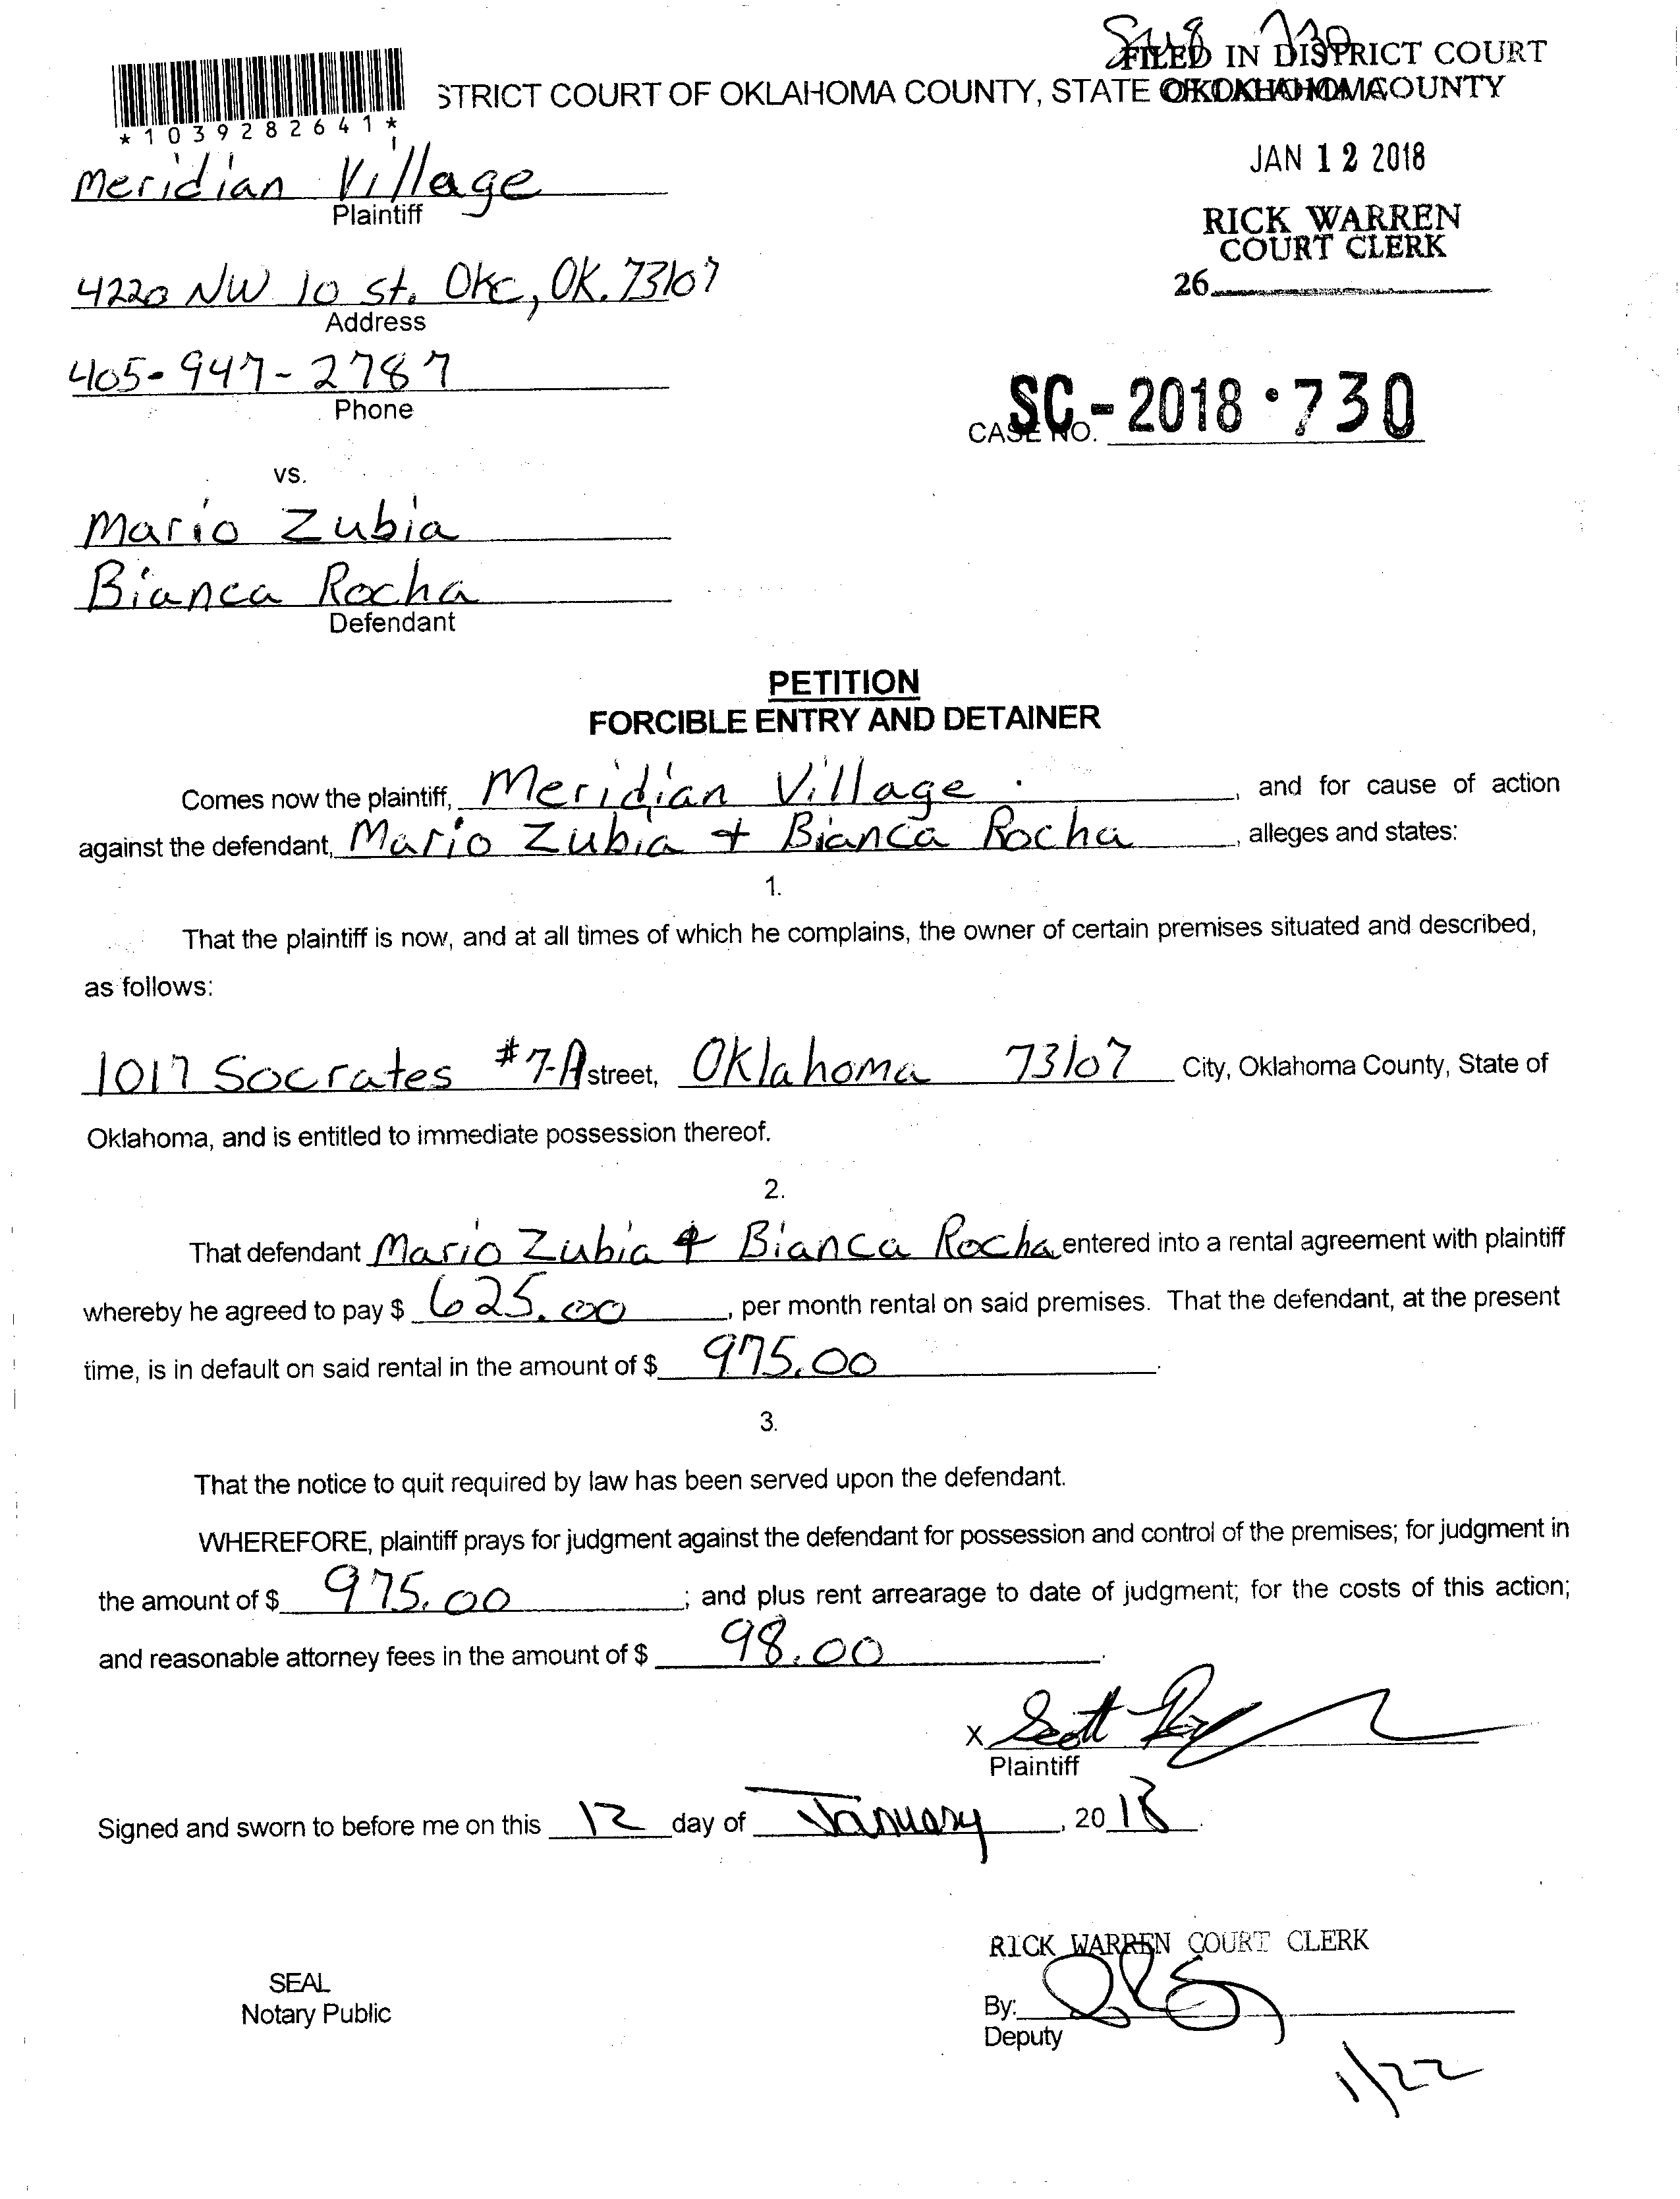 FILED IN DISTRICT COURT
STRICT COURT OF OKLAHOMA COUNTY, STATE OF OKLAHOMA
OKLAHOMA COUNTY
*1039282641*
JAN 12 2018
Meridian Village
Plaintiff
RICK WARREN
COURT CLERK
4220 NW 10 st. OKC, OK. 73107
26
Address
405-947-2787
Phone
CASE NO. SC-2018-730
vs.
Mario Zubia
Bianca Rocha
Defendant
PETITION
FORCIBLE ENTRY AND DETAINER
Comes now the plaintiff, Meridian Village, and for cause of action
against the defendant, Mario Zubia + Bianca Rocha, alleges and states:
1.
That the plaintiff is now, and at all times of which he complains, the owner of certain premises situated and described,
as follows:
1017 Socrates #7-A street, Oklahoma 73107 City, Oklahoma County, State of
Oklahoma, and is entitled to immediate possession thereof.
2.
That defendant Mario Zubia + Bianca Rocha entered into a rental agreement with plaintiff
whereby he agreed to pay $ 625.00, per month rental on said premises. That the defendant, at the present
time, is in default on said rental in the amount of $ 975.00.
3.
That the notice to quit required by law has been served upon the defendant.
WHEREFORE, plaintiff prays for judgment against the defendant for possession and control of the premises; for judgment in
the amount of $ 975.00; and plus rent arrearage to date of judgment; for the costs of this action;
and reasonable attorney fees in the amount of $ 98.00.
X Scott
Plaintiff
Signed and sworn to before me on this 12 day of January, 2018.
RICK WARREN COURT CLERK
SEAL
Notary Public
By:
Deputy
1/22